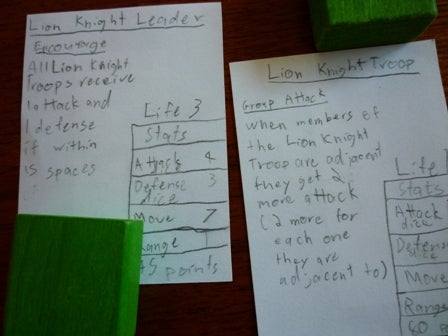 Lion Knight Leader
Encourage
All Lion Knight
Troops receive
1 attack and
1 defense
if within
15 spaces
Life 3
Stats
Attack 4
Defense 3
dice
Move 7
Range 1
points
Lion Knight Troop
Group Attack
When members of
the Lion Knight
Troop are adjacent
they get 2
more attack
(2 more for
each one
they are
adjacent to)
Life
Stats
Attack
dice
Defense
dice
Move
Range